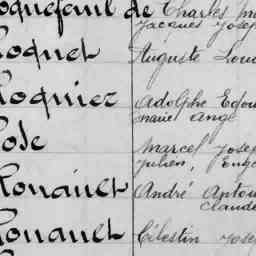 oquefeuil de Charles
Jacques Josep
Roquet Auguste Loui
Roquier Adolphe Edou
Marie Ange
Rose Marcel Josep
Julien, Eug
Rouault André Antoi
Claude
Rouault Célestin Josep